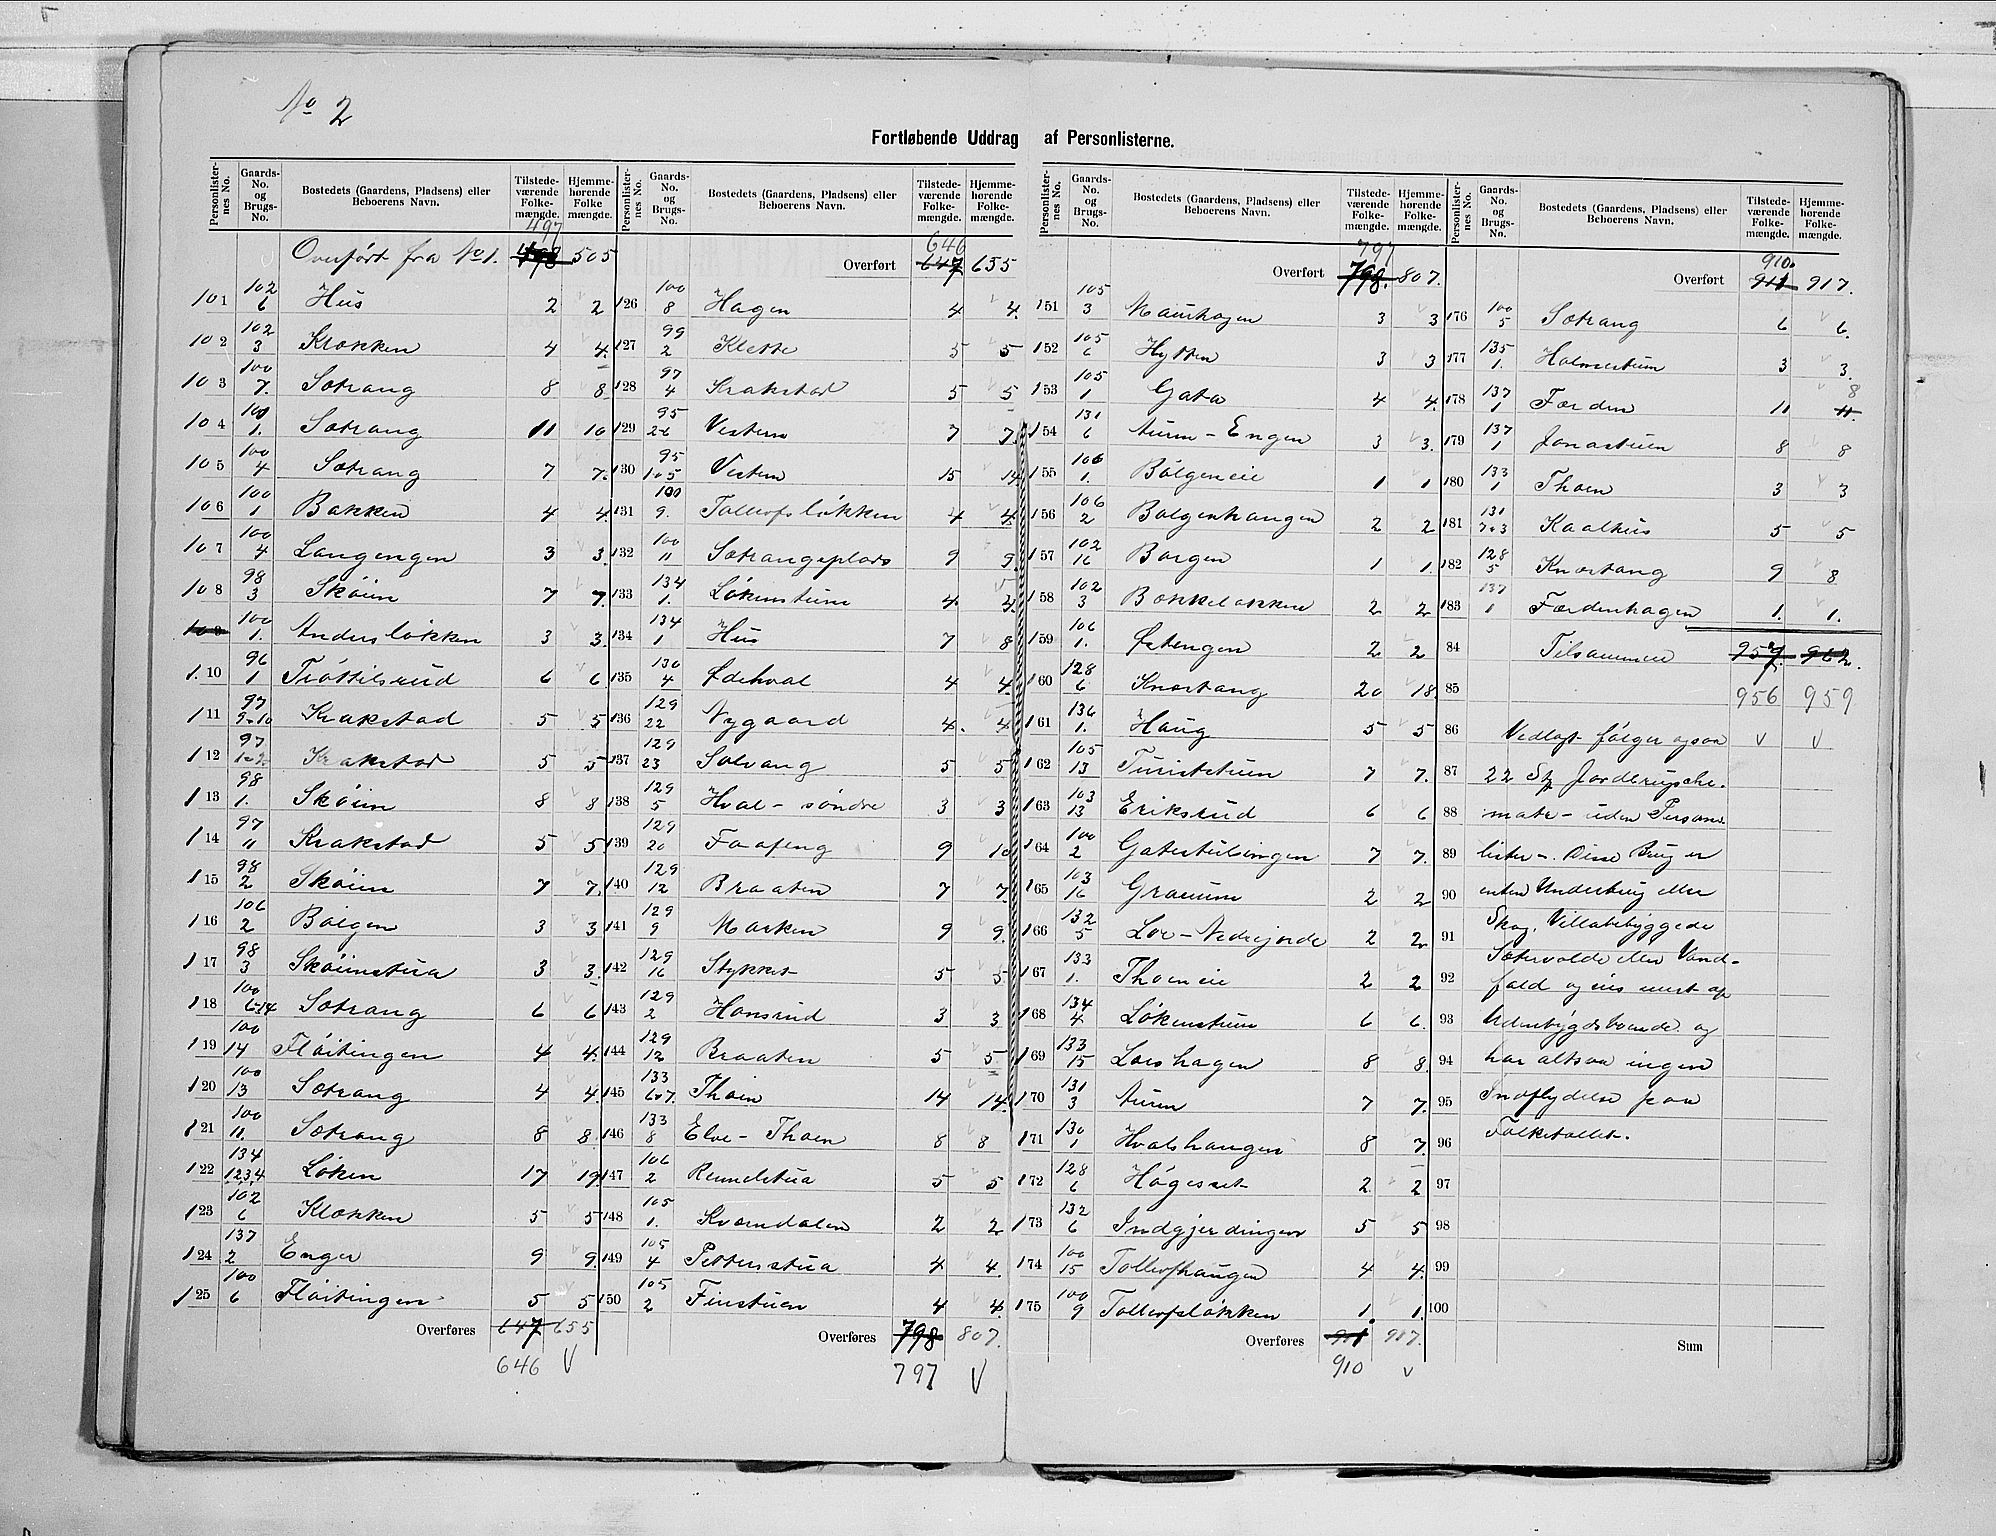 No 2
Fortløbende Uddrag af Personlisterne.
Personlisternes No. Gaards-No. og Brugs-No. Bostedets (Gaardens, Pladsens) eller Beboerens Navn. Tilstedeværende Folkemængde. Hjemmehørende Folkemængde.
497
Overført fra No 1. 498 505
101 102/6 Hus 2 2
102 102/3 Krokken 4 4.
103 100/7. Sætrang 8 8
104 100/1. Sætrang 11 10
105 100/4 Sætrang 7 7.
106 100/1 Bakken 4 4.
107 100/4 Langengen 3 3.
108 98/3 Skøien 7 7.
109 100/1. Andersløkken 3 3.
110 96/1 Trøttilsrud 6 6
111 97/9-10 Krakstad 5 5
112 97/1-2 Krakstad 5 5
113 98/1. Skøien 8 8
114 97/11 Krakstad 5 5.
115 98/2 Skøien 7 7.
116 106/2 Bølgen 3 3
117 98/3 Skøienstua 3 3.
118 100/6-14 Sætrang 6 6
119 100/14 Fløitingen 4 4.
120 100/13 Sætrang 4 4.
121 100/11. Sætrang 8 8.
122 134/1,2,3,4 Løken 17 19.
123 102/6 Klækken 5 5
124 137/2 Enger 9 9.
125 100/6 Fløitingen 5 5
Overføres 647 655
646 V
Personlisternes No. Gaards-No. og Brugs-No. Bostedets (Gaardens, Pladsens) eller Beboerens Navn. Tilstedeværende Folkemængde. Hjemmehørende Folkemængde.
646
Overført 647 655
126 100/8 Hagen 4 4.
127 99/2 Klette 5 5
128 97/4 Krakstad 5 5
129 95/26 Vestern 7 7.
130 95/105 Vestern 15 14
131 100/9. Tollerfsløkken 4 4
132 100/11 Sætrangsplads 9 9.
133 134/1. Løkenstuen 4 4.
134 134/1 Hus 7 8
135 130/4 Ødehval 4 4
136 129/22 Nygaard 4. 4
137 129/23 Solvang 5 5
138 129/5 Hval - søndre 3 3
139 129/20 Faafeng 9 10
140 129/12 Braaten 7 7.
141 129/9 Marken 9 9.
142 129/16 Stykket 5 5
143 129/2 Hansrud 3 3
144 129/12 Braaten 5 5
145 133/6o7. Thoen 14 14.
146 133/8 Elve - Thoen 8 8
147 106/2 Rundstua 5 5
148 105/1. Kværndalen 2 2
149 105/4 Pettersstua 4 4.
150 105/2 Finstuen 4 4.
Overføres 798 807.
797 V
Personlisternes No. Gaards-No. og Brugs-No. Bostedets (Gaardens, Pladsens) eller Beboerens Navn. Tilstedeværende Folkemængde. Hjemmehørende Folkemængde.
797
Overført 798. 807.
151 105/3 Maurhagen 3 3
152 105/6 Hytten 3 3
153 105/1 Gata 4 4.
154 131/6 Aurm - Engen 3 3.
155 106/1. Bølgeneie 1 1
156 106/2 Bølgenhaugen 2 2
157 102/16 Borgen 1 1.
158 102/3 Bakkeløkken 2 2
159 106/1. Østengen 2 2
160 128/6 Knæstang 20 18.
161 136/1. Haug 5 5
162 105/13 Turistetuen 7 7.
163 103/13 Eriksrud 6 6
164 100/2 Gatestubingen 7 7.
165 103/16 Granum 2 2
166 132/5 Loe - Nedrejorde 2 2
167 133/1. Thoeneie 2 2
168 134/4 Løkenstuen 6 6.
169 133/15 Loeshagen 8 8.
170 131/3 Aurm 7 7.
171 130/1 Hvalshaugen 8 7.
172 128/6 Høgesset 2 2
173 132/6 Indgjerdingen 5 5
174 100/15 Tollerfhaugen 4 4.
175 100/9 Tollerfsløkken 1. 1.
Overføres 911 917.
910 V
Personlisternes No. Gaards-No. og Brugs-No. Bostedets (Gaardens, Pladsens) eller Beboerens Navn. Tilstedeværende Folkemængde. Hjemmehørende Folkemængde.
910
Overført 911 917.
176 100/5 Sætrang 6 6.
177 135/1. Holmestuen 3 3.
178 137/1 Færden 11 11 8
179 137/1 Jonastuen 8 8
180 133/1 Thoen 3 3
181 131/7o3 Kaalhus 5 5
182 128/5 Knæstang 9 8
183 137/1 Færdenhagen 1. 1.
84 Tilsammen 957. 962.
85 956 959
86 Vedlagt følger ogsaa V V
87 22 St Jordbrugsske-
88 mate - uden Person-
89 lister -. Disse Brug er
90 enten Underbrug eller
91 Skog, Villabebyggede
92 Sætervolde eller Vand-
fald og eies mest af
93 Udenbygdsboende og
94 har altsaa ingen
95 Indflydelse paa
96 Folketallet.
97
98
99
100
Sum